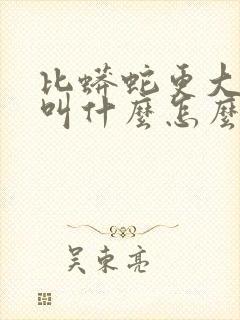 比蟒蛇更大
叫什麼怎麼
吴東亮